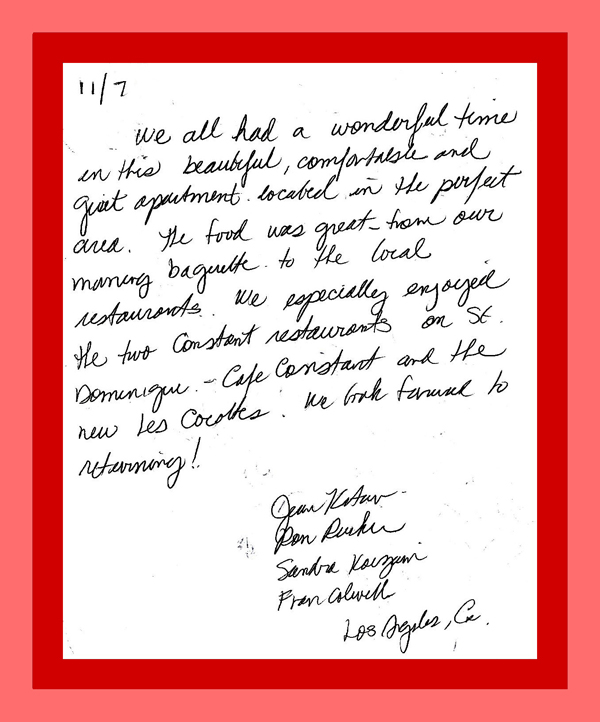 11/7
We all had a wonderful time
in this beautiful, comfortable and
quiet apartment located in the perfect
area. The food was great - from our
morning baguette to the local
restaurants. We especially enjoyed
the two Constant restaurants on St.
Dominique - Cafe Constant and the
new Les Cocottes. We look forward to
returning!
Jean
Ron
Sandra
Fran Colwell
Los Angeles, Ca.